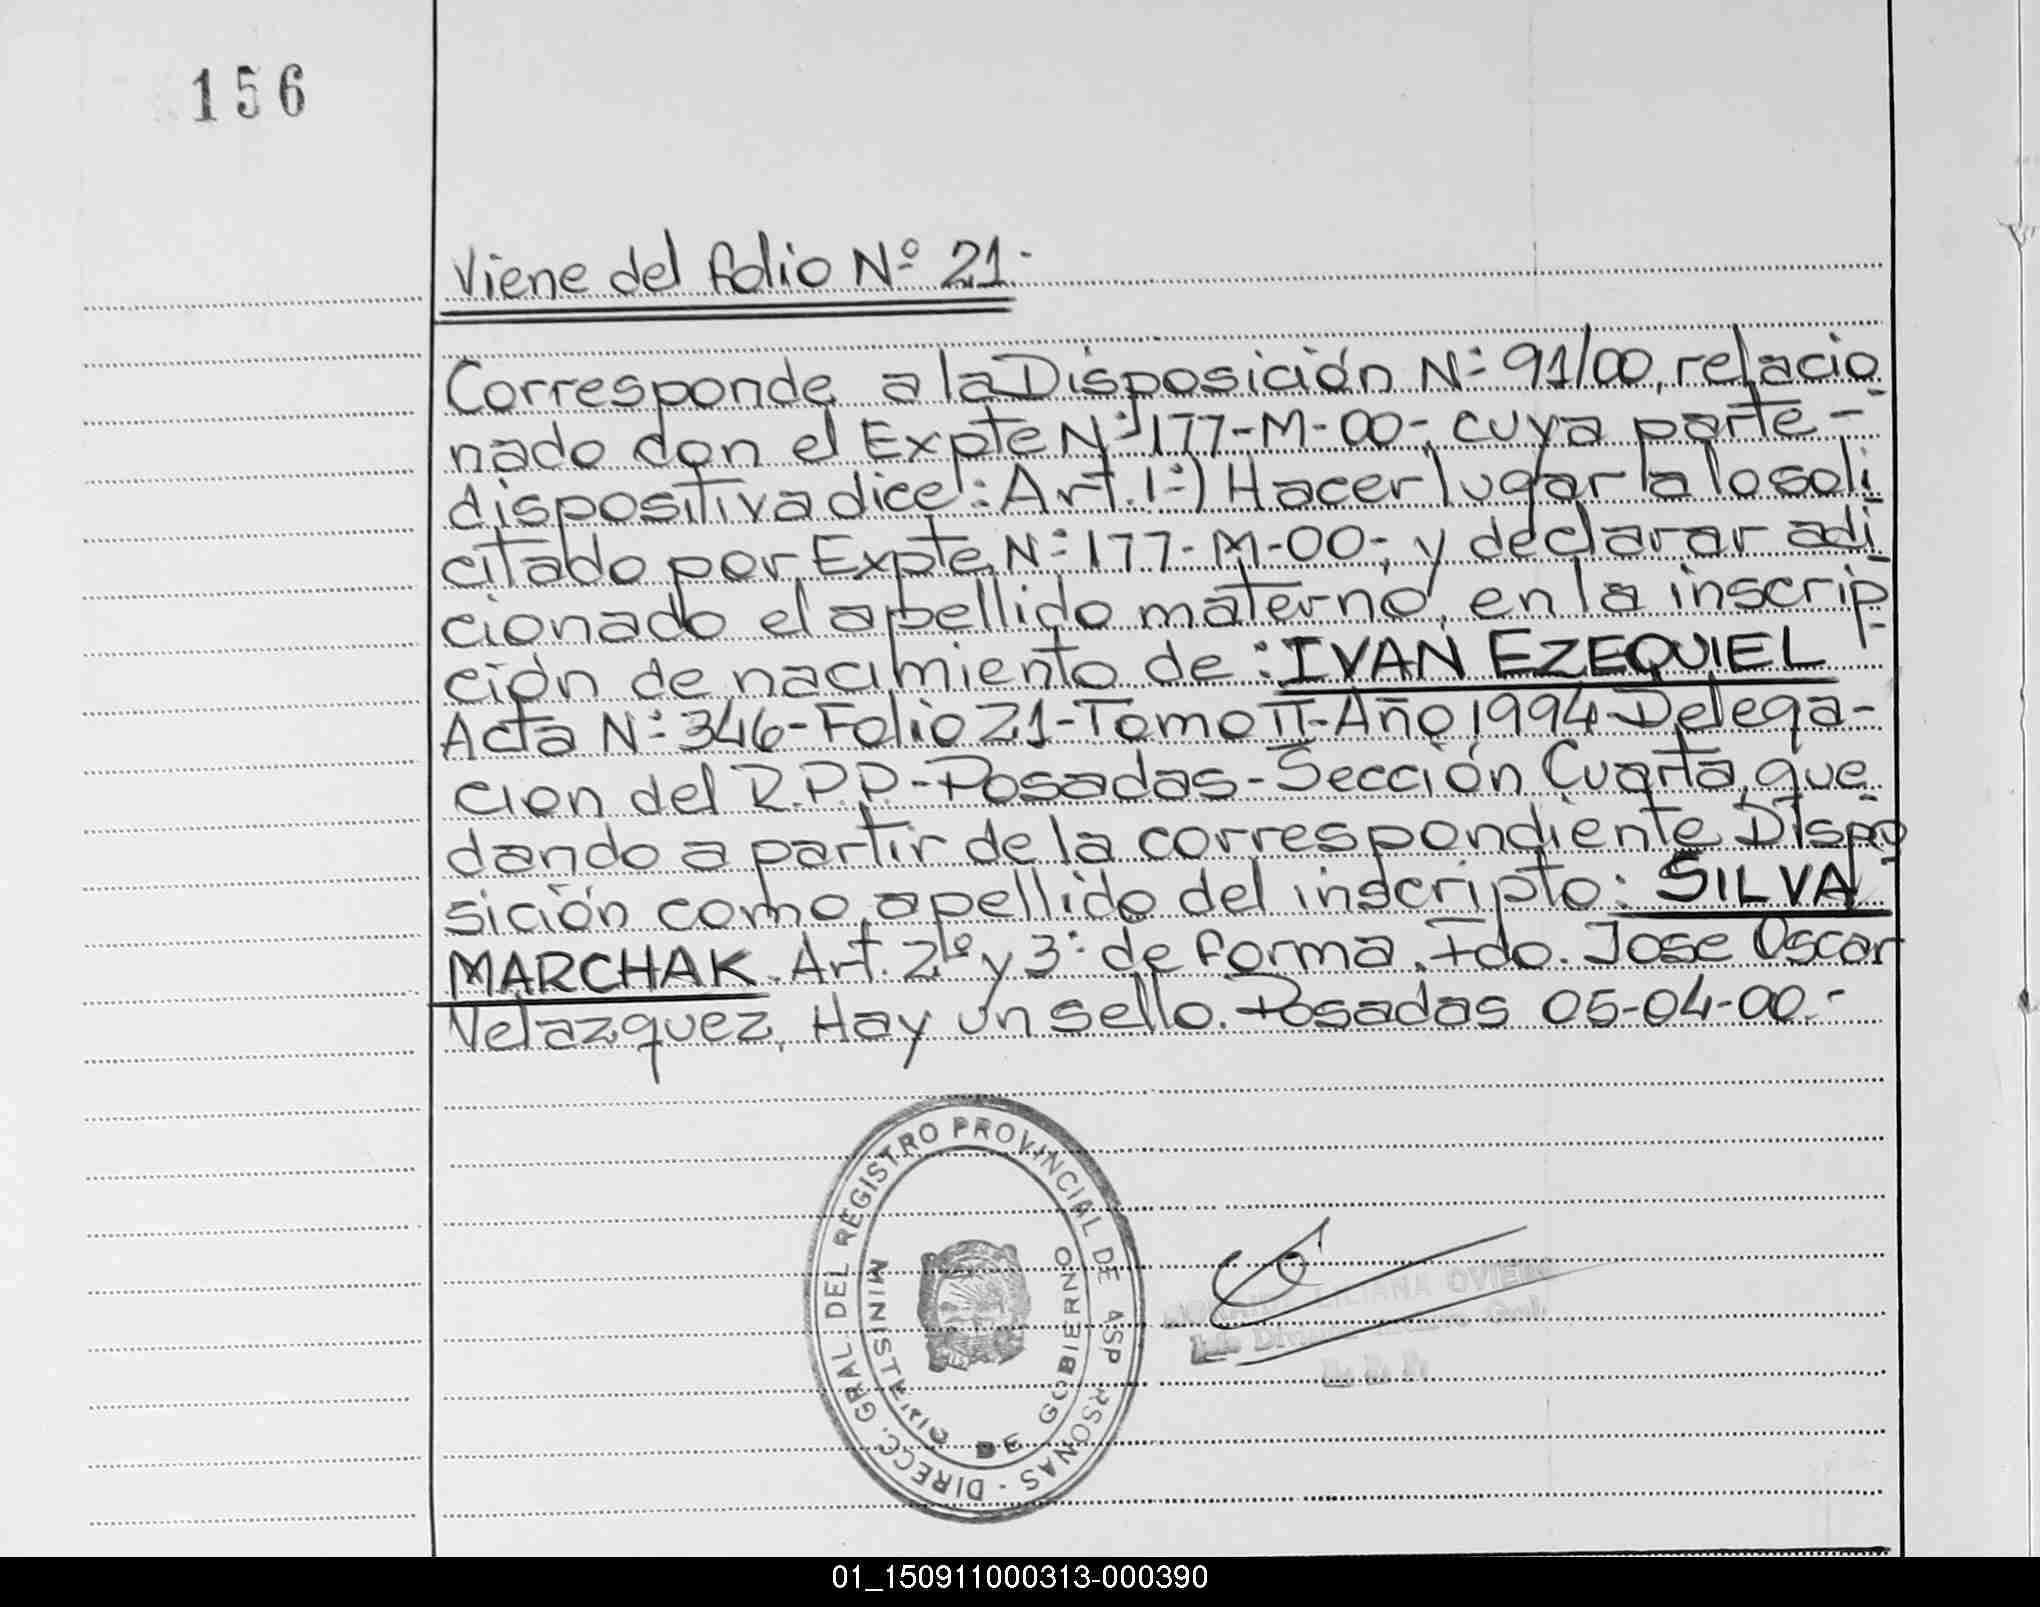 156
Viene del folio Nº 21.
Corresponde a la Disposición Nº 91/00, relacio
nado con el Expte Nº 177-M-00-, cuya parte-
dispositiva dice: Art. 1º) Hacer lugar a lo soli
citado por Expte Nº 177-M-00-, y declarar adi
cionado el apellido materno, en la inscrip
ción de nacimiento de: IVAN EZEQUIEL
Acta Nº 346-Folio 21-Tomo II-Año 1994-Delega-
cion del R.P.P.-Posadas-Sección Cuarta, que
dando a partir de la correspondiente Dispo
sición como apellido del inscripto: SILVA
MARCHAK. Art. 2º y 3º de forma. Fdo. Jose Oscar
Velazquez. Hay un sello. Posadas 05-04-00.-
DIRECC. GRAL DEL REGISTRO PROVINCIAL DE
MINISTERIO DE GOBIERNO
LILIANA
01_150911000313-000390